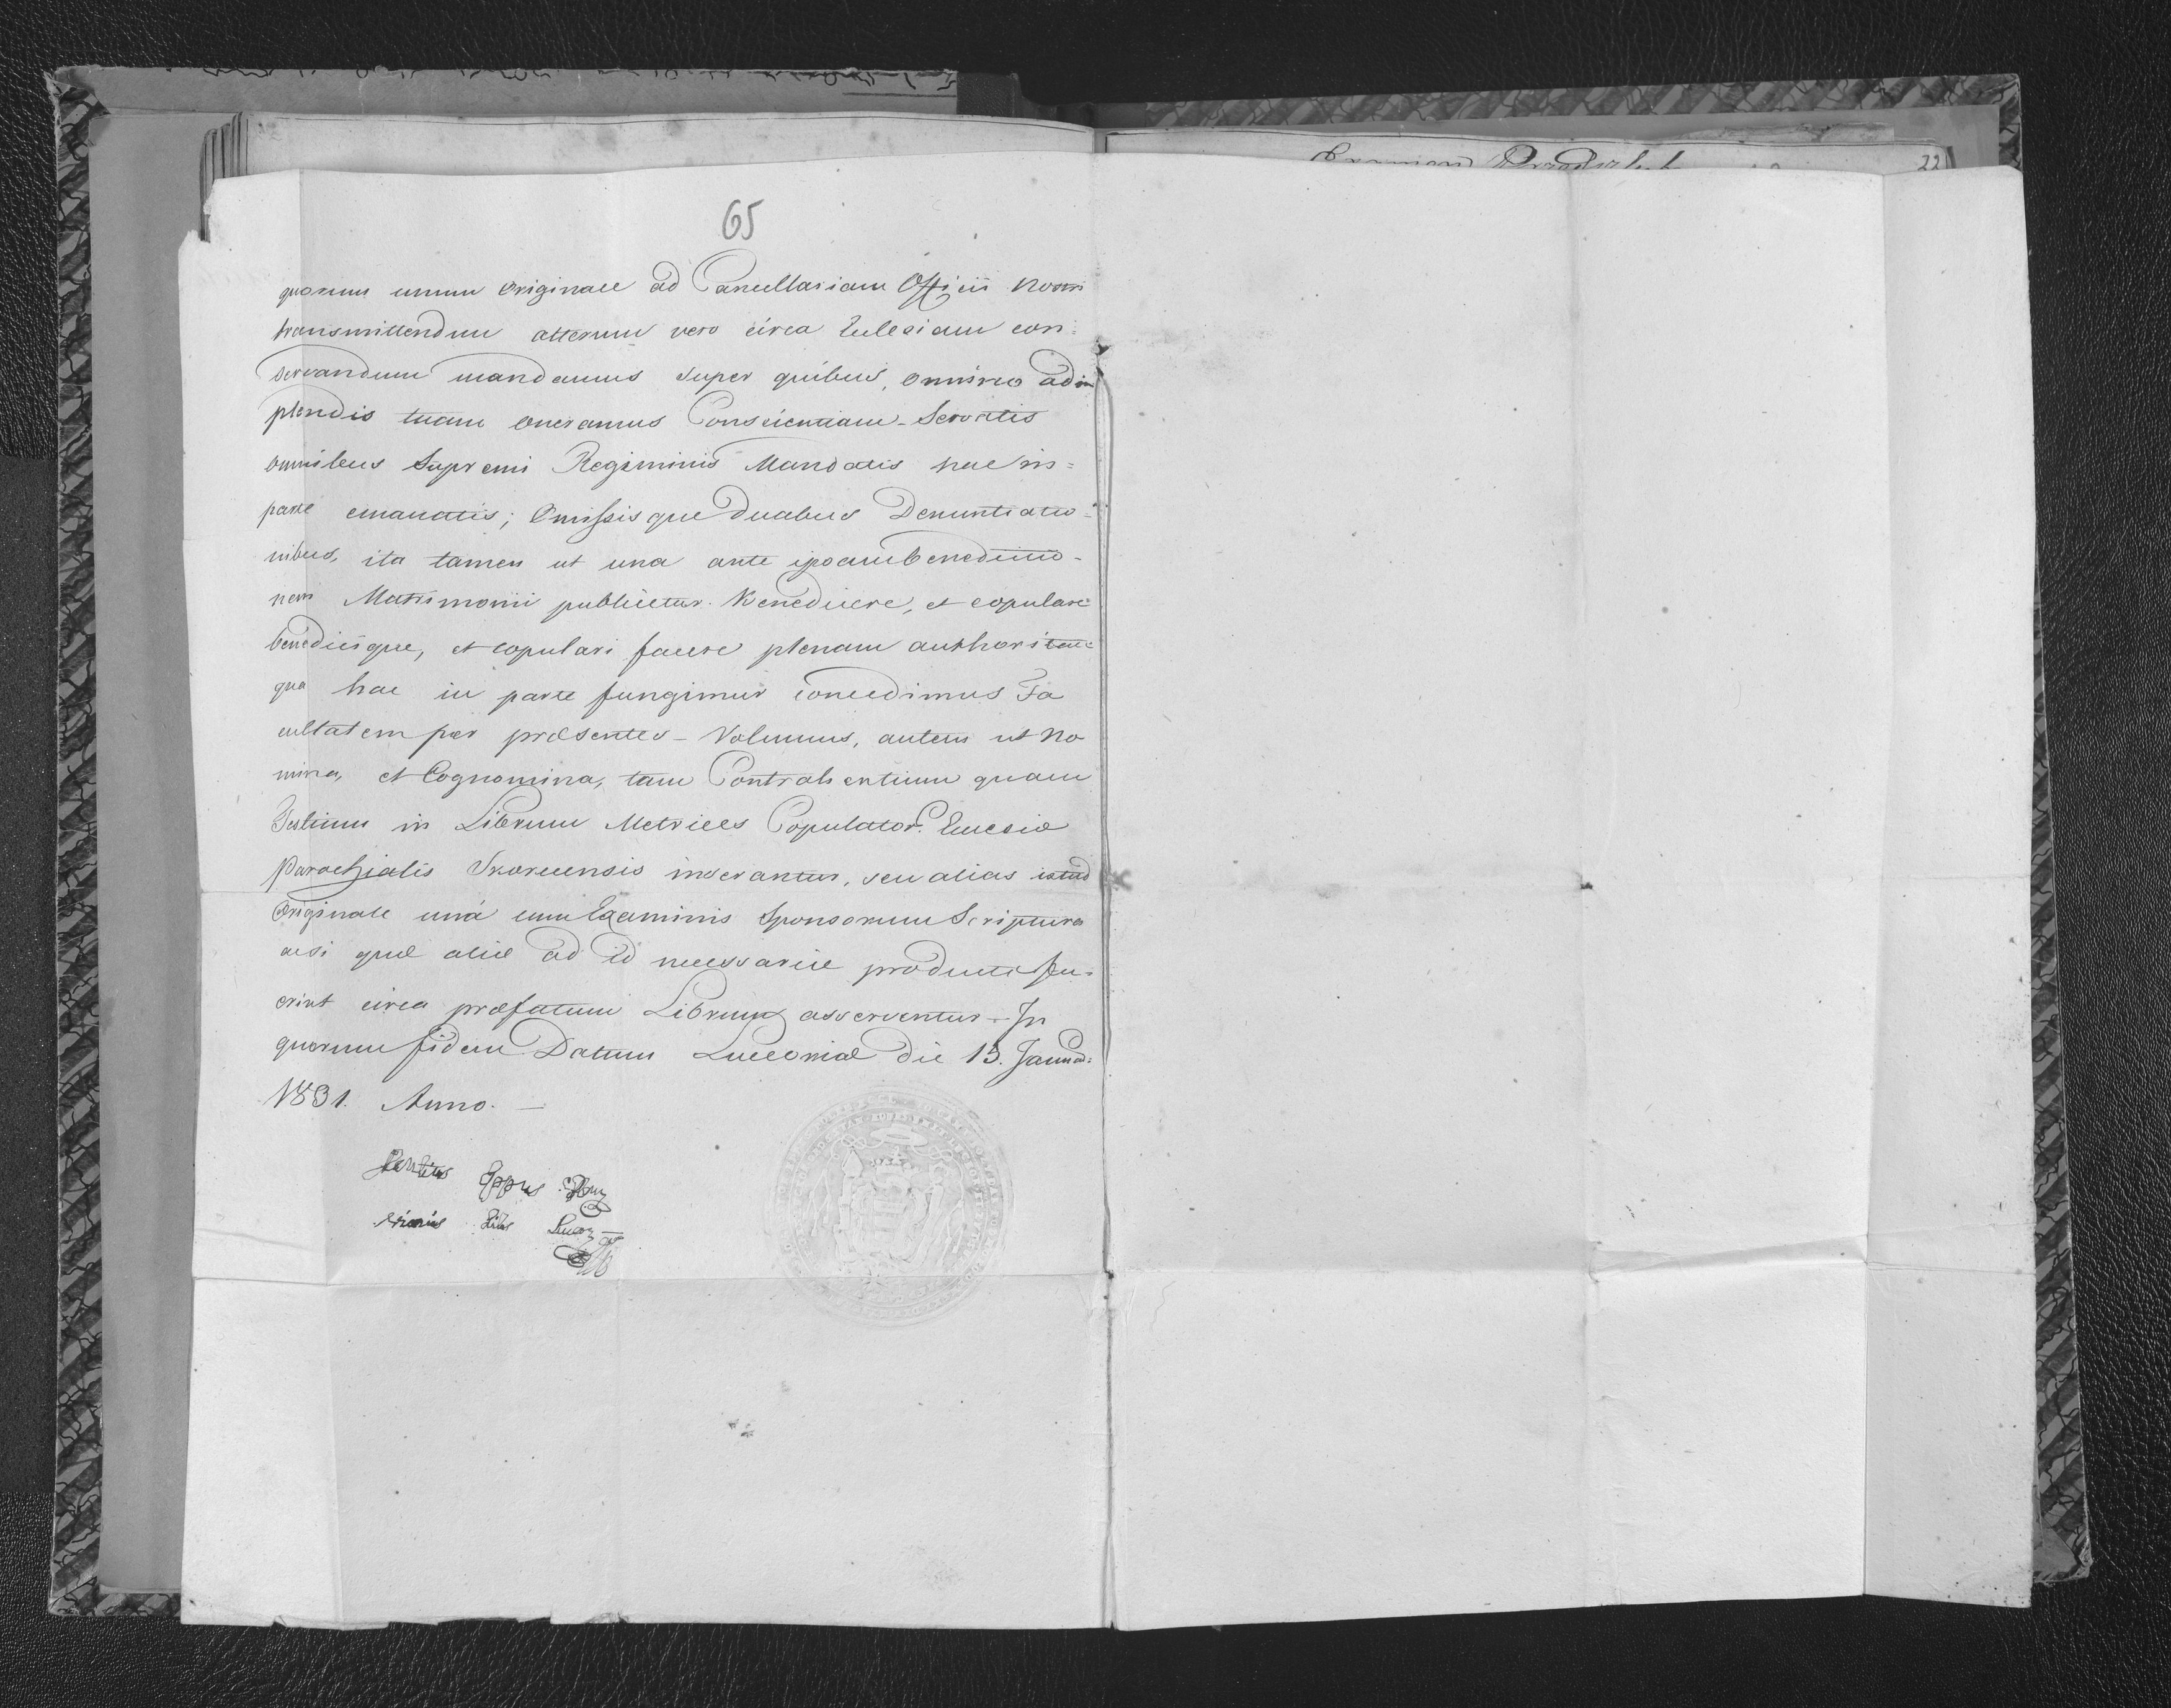 65
quorum unum Originale ad Cancellariam Officii Nostri
transmittendum alterum vero circa Ecclesiam con=
servandum mandamus super quibus, omnino adim
plendis tuam oneramus Conscientiam - Servatis
omnibus Supremi Regiminis Mandatis hac in=
parte emanatis; Omissisque duabus Denuntiatio=
nibus, ita tamen ut una ante ipsam benedictio-
nem Matrimonii publicetur. Benedicere, et copulare
benedicique, et copulari facere plenam authoritate
qua hac in parte fungimur concedimus Fa
cultatem per præsentes - Volumus, autem ut No
mina, et Cognomina, tam Contrahentium quam
Testium in Librum Metrices Copulator. Ecclesiæ
Parochialis Skorecensis inserantur, seu alias istud
Originale unà cum Examinis Sponsorum Scriptura
acsi quæ aliæ ad id necessariæ productæ fu=
erint circa præfatum Librum asserventur - In
quorum fidem Datum Luceoriæ die 15. Januar=
1831. Anno. —
Eppus
Luceor
22